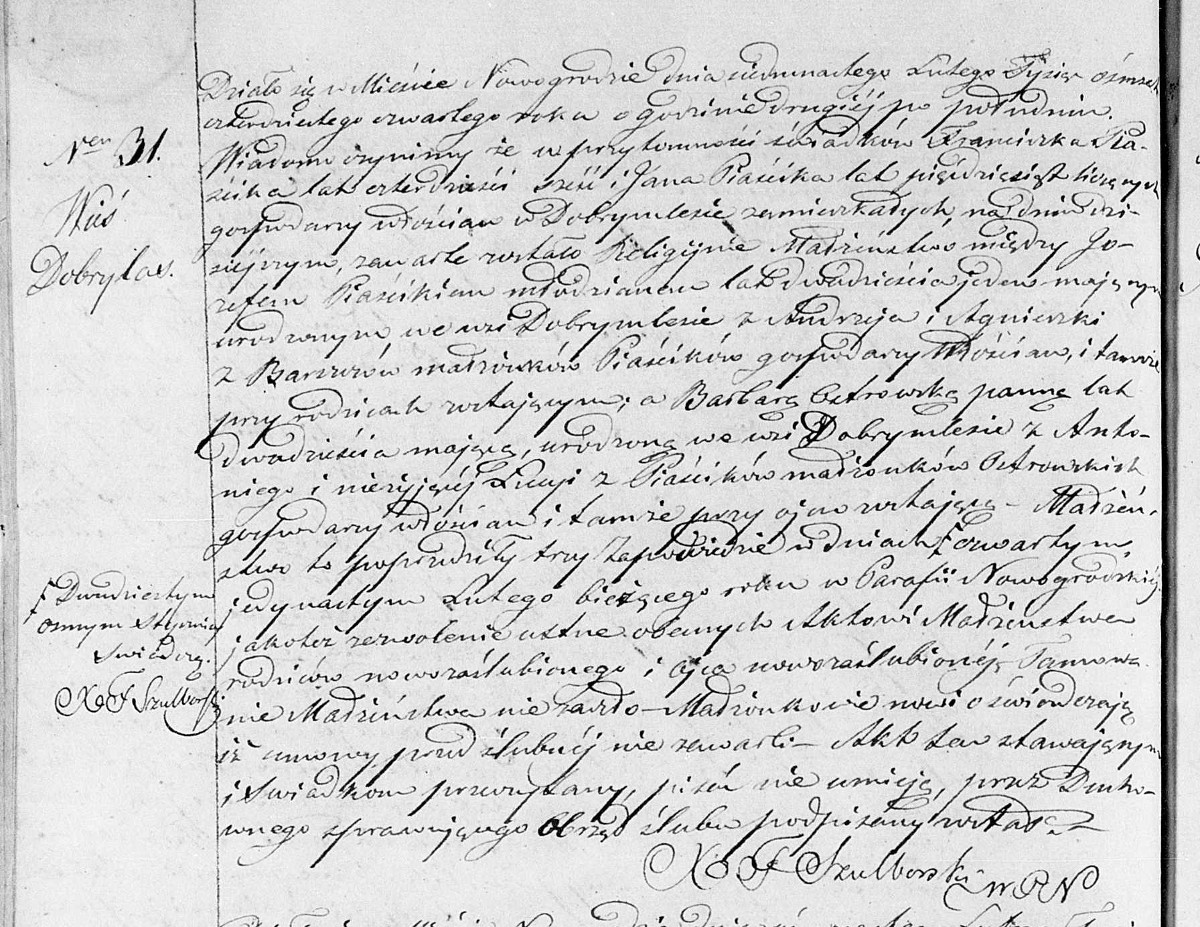 Nro 31.
Wieś
Dobrylas.
Działo się w Mieście Nowogrodzie dnia siedmnastego Lutego Tysiąc ośmset
czterdziestego czwartego roku o godzinie drugiéj po południu.
Wiadomo czynimy że w przytomności świadków Franciszka Pia-
ścika lat czterdzieści sześć i Jana Piaścika lat pięćdziesiąt liczących
gospodarzy włościan w Dobrymlesie zamieszkałych na dniu dzi-
siéjszym, zawarte zostało Religijne Małżeństwo między Jó-
zefem Piaścikiem młodzianem lat dwadzieścia jeden mającym
urodzonym we wsi Dobrymlesie z Andrzeja i Agnieszki
z małżonków Piaścików gospodarzy Włościan, i tamże
przy rodzicach zostającym; a Barbarą Ostrowską panną lat
dwadzieścia mającą, urodzoną we wsi Dobrymlesie z Anto-
niego i nieżyjącéj Łucyi z Piaścików małżonków Ostrowskich
gospodarzy włościan i tamże przy ojcu zostającą – Małżeń-
stwo to poprzedziły trzy Zapowiedzie w dniach ƒ czwartym
jedynastym Lutego bieżącego roku w Parafii Nowogrodzkiéj
jakoteż zezwolenie ustne obecnych Aktowi Małżeństwa
rodziców nowozaślubionego i ojca nowozaślubionéj, Tamowa-
nie Małżeństwa nie zaszło – Małżonkowie nowi oświadczają
iż umowy przed ślubnéj nie zawarli – Akt ten stawającym
i Świadkom przeczytany, pisać nie umieją, przez Ducho-
wnego sprawującego Obrzęd ślubu podpisany został
X F Szulborski
ƒ Dwudziestym
ósmym Stycznia
Świadczę.
X F Szulborski